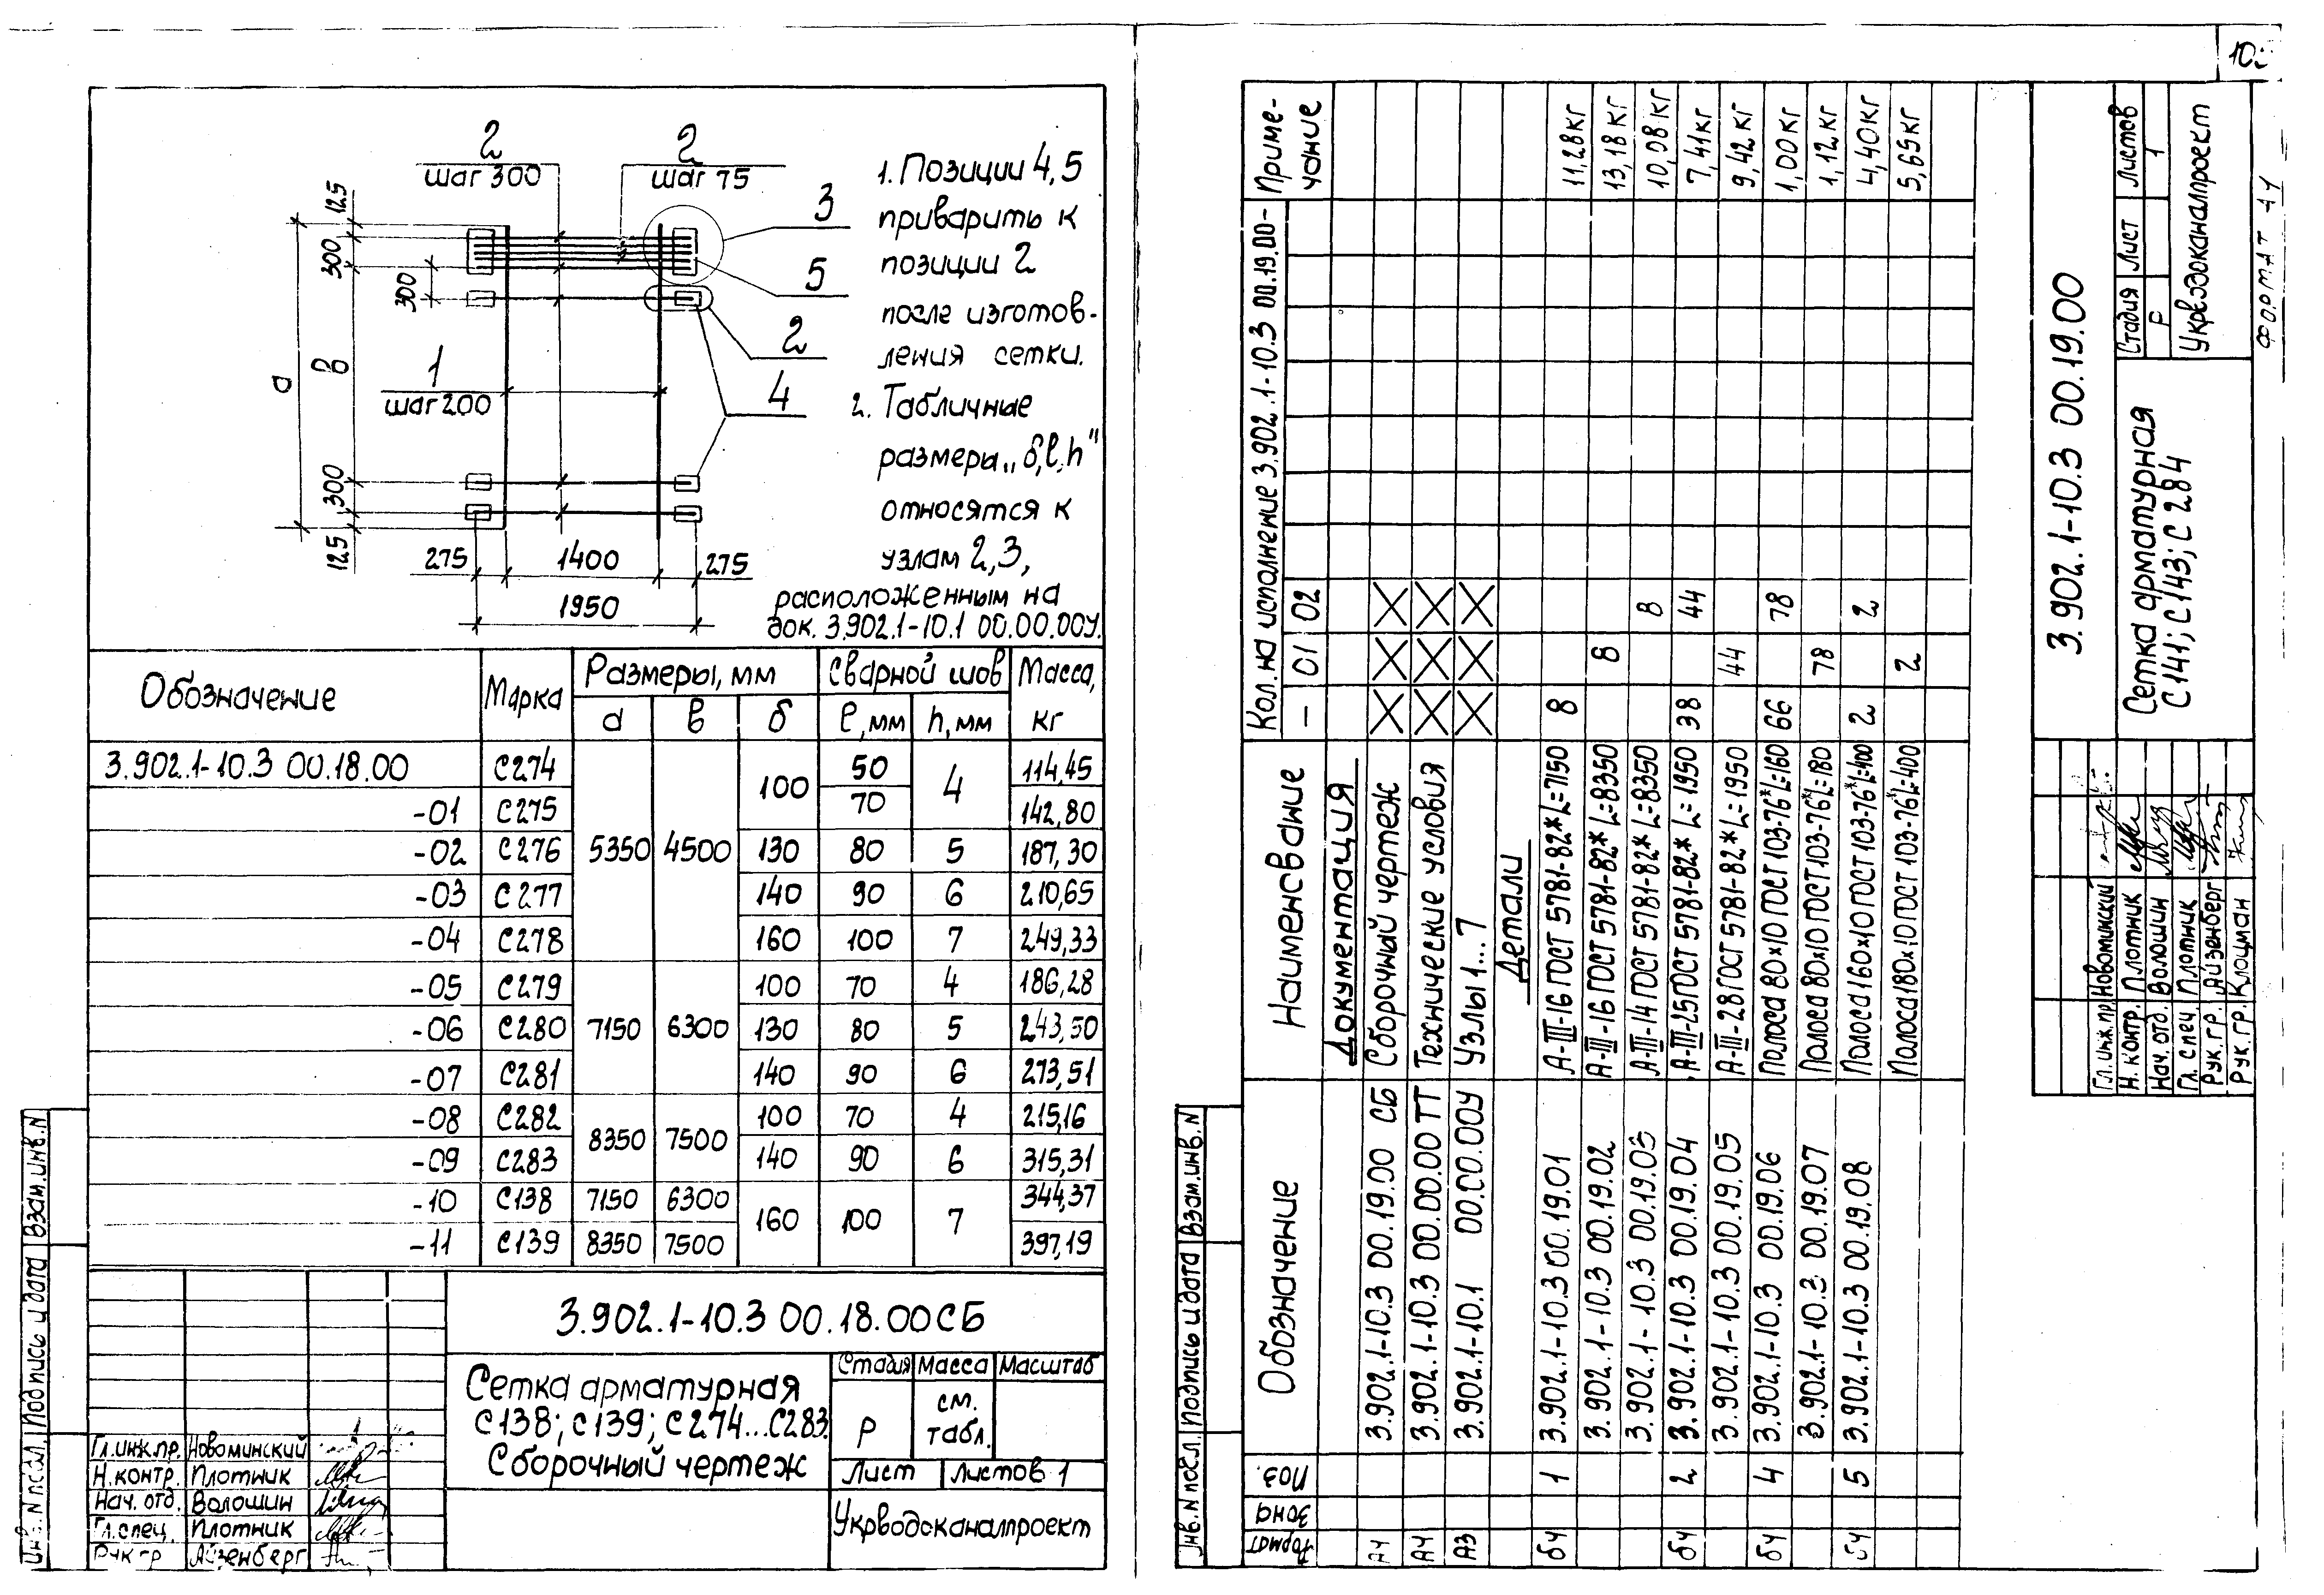 10
2
шаг 300
2
шаг 75
3
5
2
4
1
шаг 200
125
300
300
а
в
300
125
275
1400
275
1950
1. Позиции 4,5
приварить к
позиции 2
после изготов-
ления сетки.
2. Табличные
размеры „б,l,h"
относятся к
узлам 2,3,
расположенным на
док. 3.902.1-10.1 00.00.00У.
Обозначение Марка Размеры, мм Сварной шов Масса, кг
а в б ℓ, мм h, мм
3.902.1-10.3 00.18.00 С274 5350 4500 100 50 4 114,45
-01 С275 70 142,80
-02 С276 130 80 5 187,30
-03 С277 140 90 6 210,65
-04 С278 160 100 7 249,33
-05 С279 7150 6300 100 70 4 186,28
-06 С280 130 80 5 243,50
-07 С281 140 90 6 273,51
-08 С282 8350 7500 100 70 4 215,16
-09 С283 140 90 6 315,31
-10 С138 7150 6300 160 100 7 344,37
-11 С139 8350 7500 397,19
3.902.1-10.3 00.18.00СБ
Сетка арматурная
С138; С139; С274...С283.
Сборочный чертеж
Стадия Масса Масштаб
Р см. табл.
Лист Листов 1
Укрводоканалпроект
Гл.инж.пр. Новоминский
Н.контр. Плотник
Нач. отд. Волошин
Гл.спец. Плотник
Рук гр Айзенберг
Инв. N посл. Подпись и дата Взам.инв.N
Формат Зона Поз. Обозначение Наименование Кол. на исполнение 3.902.1-10.3 00.19.00- Приме-
чание
— 01 02
Документация
А4 3.902.1-10.3 00.19.00 СБ Сборочный чертеж Х Х Х
А4 3.902.1-10.3 00.00.00 ТТ Технические условия Х Х Х
А3 3.902.1-10.1 00.00.00У Узлы 1...7 Х Х Х
Детали
бч 1 3.902.1-10.3 00.19.01 А-III-16 ГОСТ 5781-82* L=7150 8 11,28кг
3.902.1-10.3 00.19.02 А-III-16 ГОСТ 5781-82* L=8350 8 13,18 кг
3.902.1-10.3 00.19.03 А-III-14 ГОСТ 5781-82* L=8350 8 10,08 кг
бч 2 3.902.1-10.3 00.19.04 А-III-25 ГОСТ 5781-82* L=1950 38 44 7,41кг
3.902.1-10.3 00.19.05 А-III-28 ГОСТ 5781-82* L=1950 44 9,42 кг
бч 4 3.902.1-10.3 00.19.06 Полоса 80х10 ГОСТ 103-76* L=160 66 78 1,00кг
3.902.1-10.3 00.19.07 Полоса 80х10 ГОСТ 103-76* L=180 78 1,12 кг
бч 5 3.902.1-10.3 00.19.08 Полоса 160х10 ГОСТ 103-76* L=400 2 2 4,40кг
Полоса 180х10 ГОСТ 103-76* L=400 2 5,65кг
3.902.1-10.3 00.19.00
Сетка арматурная
С141; С143; С284
Стадия Лист Листов
Р 1
Укрводоканалпроект
Гл.инж.пр. Новоминский
Н.контр. Плотник
Нач.отд. Волошин
Гл. спец. Плотник
Рук.гр. Айзенберг
Рук.гр. Клоцман
Инв.N посл. Подпись и дата Взам.инв.N
Формат А4